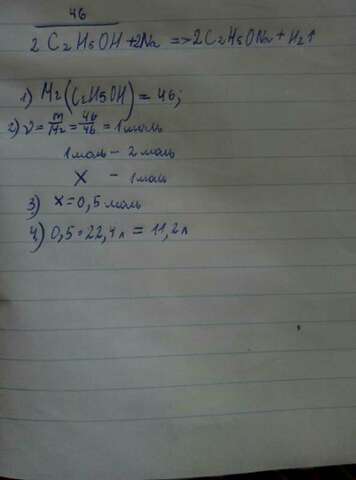 46
2 C2H5OH + 2Na => 2C2H5ONa + H2↑
1) Mr(C2H5OH) = 46;
2) ν = m/Mr = 46/46 = 1 моль
1 моль - 2 моль
x - 1 моль
3) x = 0,5 моль
4) 0,5 * 22,4 л = 11,2 л